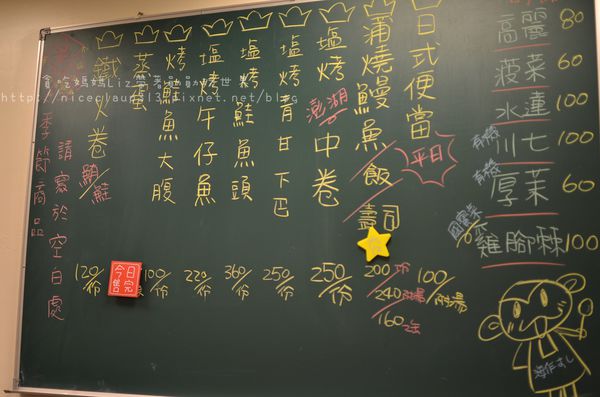 高麗 80
菠菜 60
水蓮 100
有機 川七 100
有機 厚茉 60
雞腳棘 100
日式便當 平日 100/附湯
蒲燒鰻魚飯/壽司 200 240附湯 160
澎湖 塩烤中卷 250/份
塩烤青甘下巴 250/份
塩烤鮭魚頭 360/份
塩烤午仔魚 220/份
烤鮭魚大腹 100/
今日售完
蒸蛋
火卷 鯛/鮭 120/份
請寫於空白處
季節商品
貪吃媽媽Liz帶著
http://niceclaud13.pixnet.net/blog